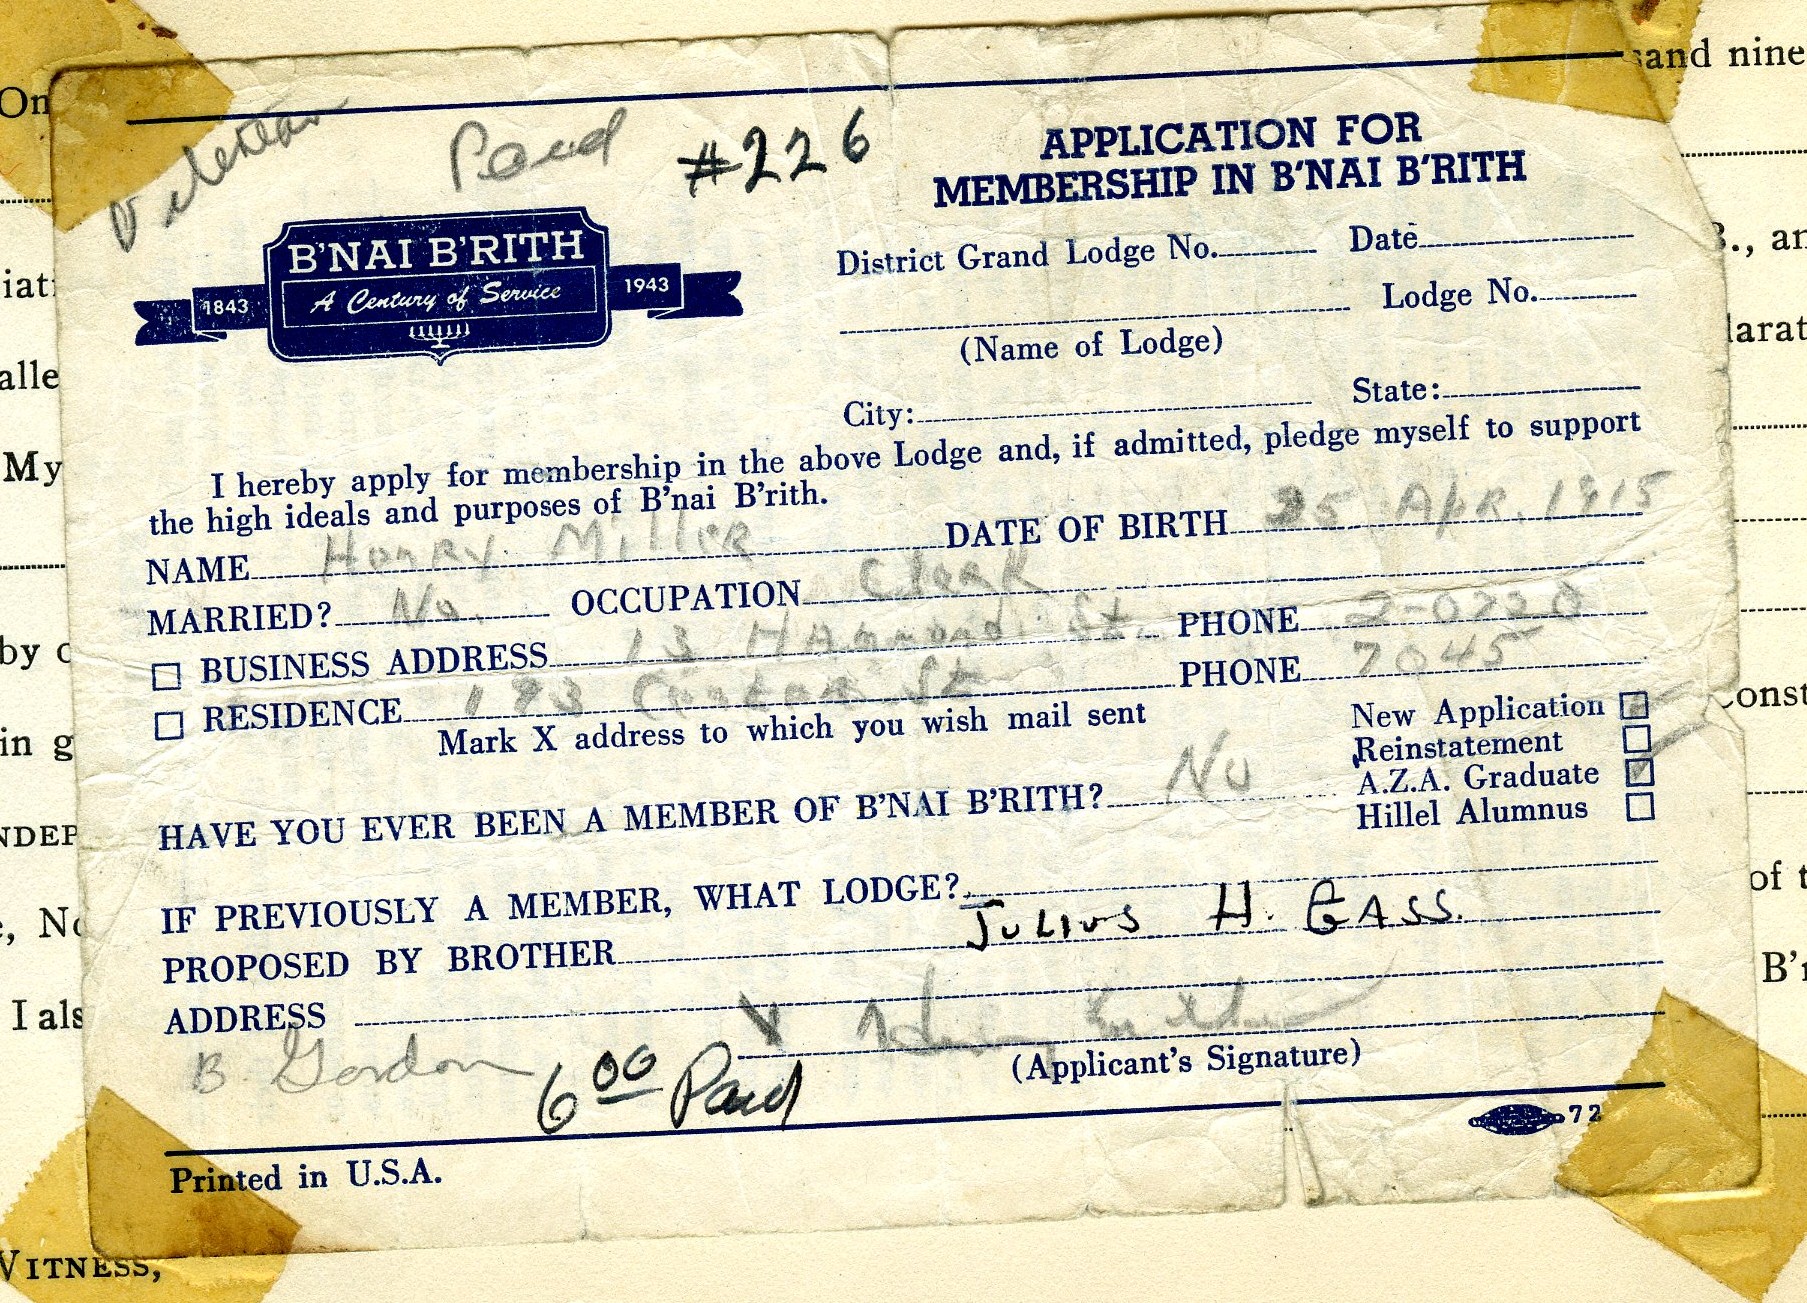 Paid #226
APPLICATION FOR
MEMBERSHIP IN B'NAI B'RITH
B'NAI B'RITH
1843 A Century of Service 1943
District Grand Lodge No. Date
Lodge No.
(Name of Lodge)
City: State:
I hereby apply for membership in the above Lodge and, if admitted, pledge myself to support
the high ideals and purposes of B'nai B'rith.
NAME Henry Miller DATE OF BIRTH 25 Apr. 1915
MARRIED? No. OCCUPATION Clerk
BUSINESS ADDRESS 13 Hammond St. PHONE 2-0220
RESIDENCE St PHONE 7045
Mark X address to which you wish mail sent
New Application
Reinstatement
A.Z.A. Graduate
Hillel Alumnus
HAVE YOU EVER BEEN A MEMBER OF B'NAI B'RITH? No
IF PREVIOUSLY A MEMBER, WHAT LODGE?
PROPOSED BY BROTHER JULIUS H. GASS.
ADDRESS X
(Applicant's Signature)
B. Gordon 6 00 Paid
72
Printed in U.S.A.
On
sand nine
alle
My
by
in g
, No
I als
of
WITNESS,